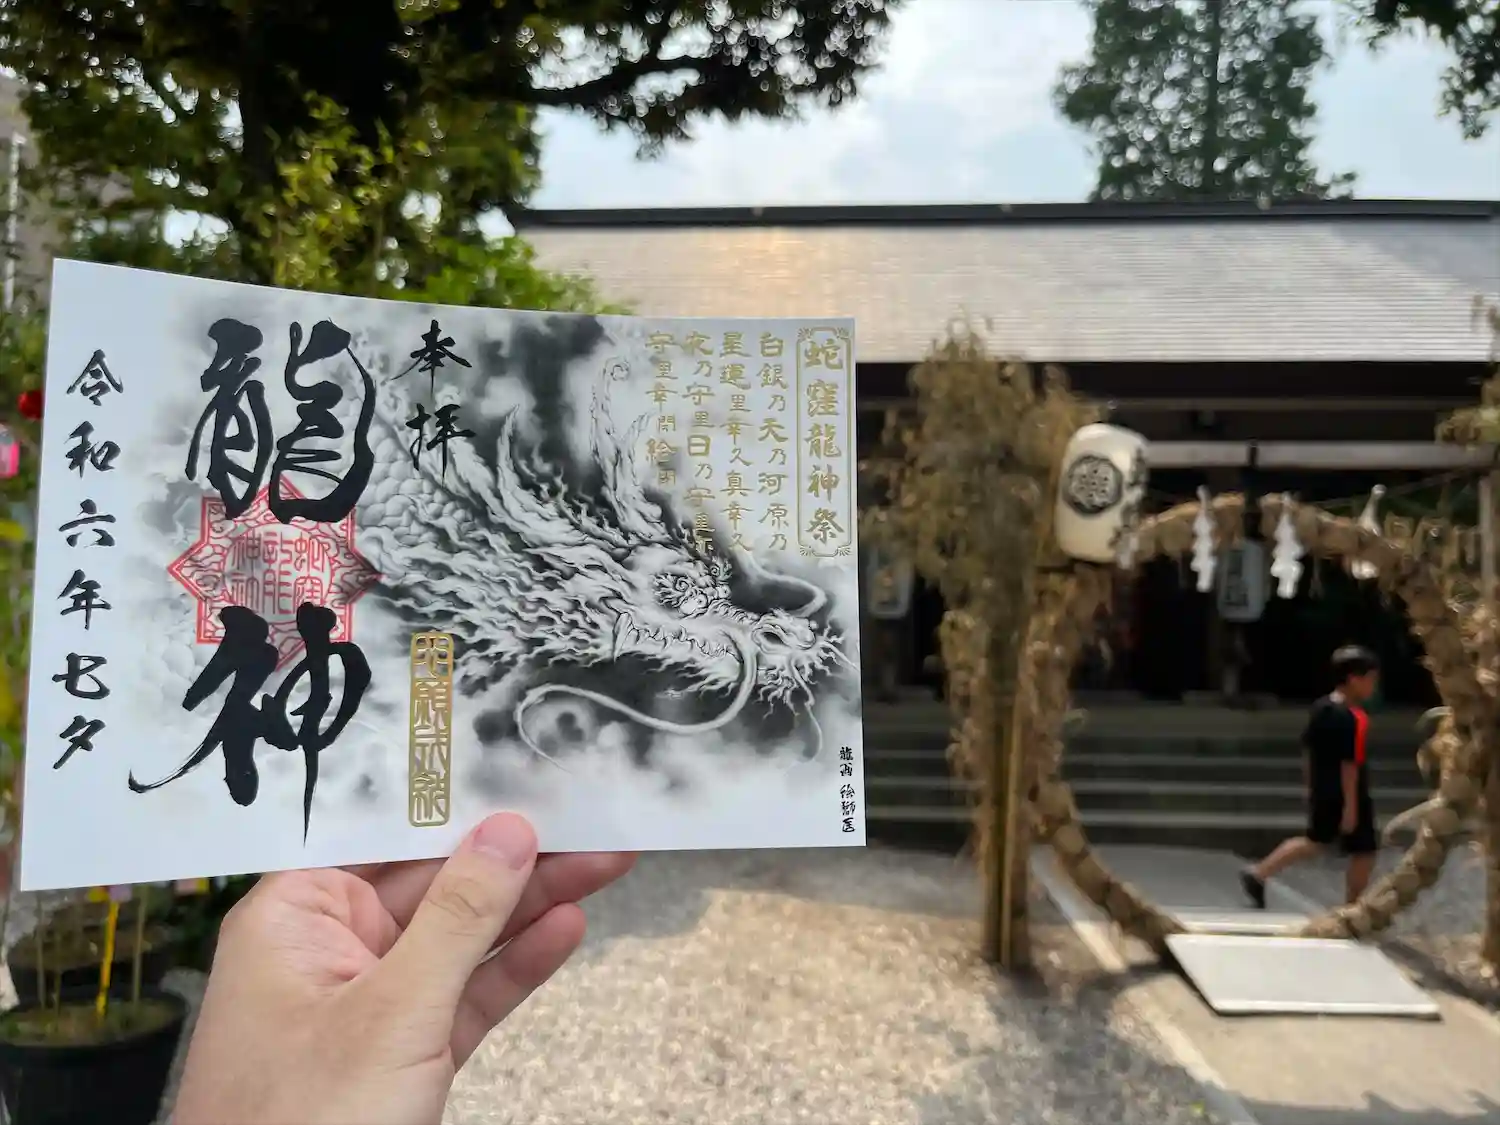 蛇窪龍神祭
白銀乃天乃河原乃
星運里幸久真幸久
夜乃守里日乃守里
守里幸閇給閇
奉拝
龍神
蛇窪龍神
令和六年七夕